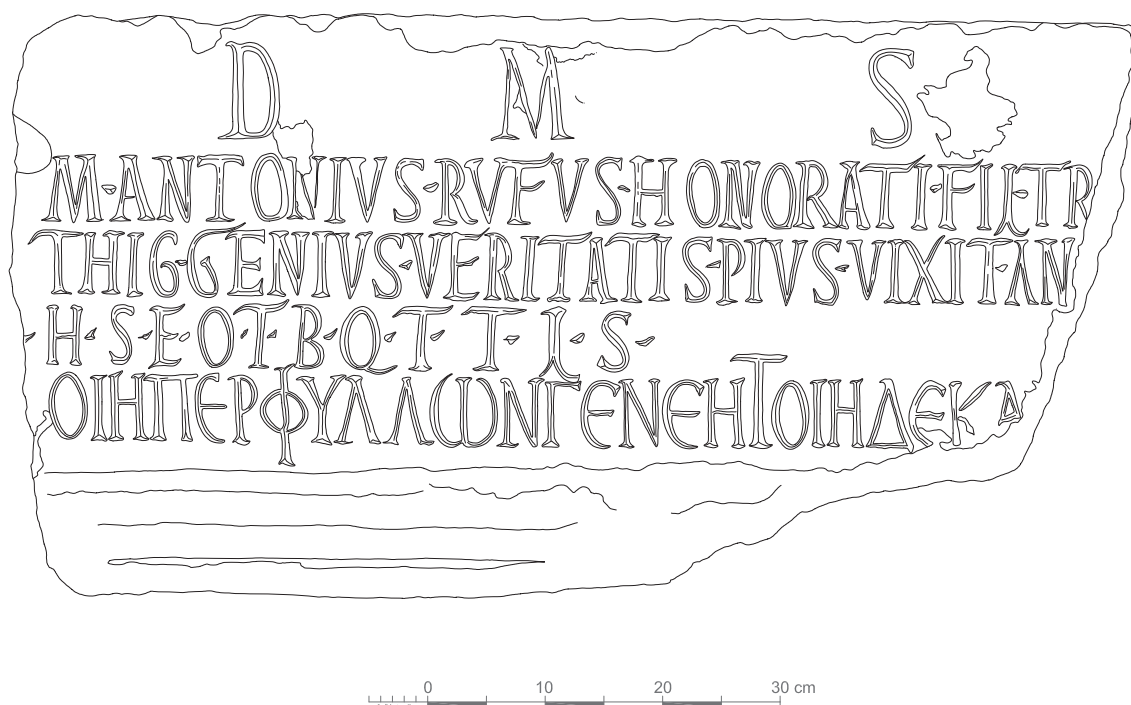 D M S
M·ANTONIVS·RVFVS·HONORATI·FIL·TR
THIG·GENIVS·VERITATIS·PIVS·VIXIT·AN
·H·S·E·O·T·B·Q·T·T·L·S·
ΟΙΗΠΕΡΦΥΛΛΩΝΓΕΝΕΗΤΟΙΗΔΕΚΑ
0 10 20 30 cm